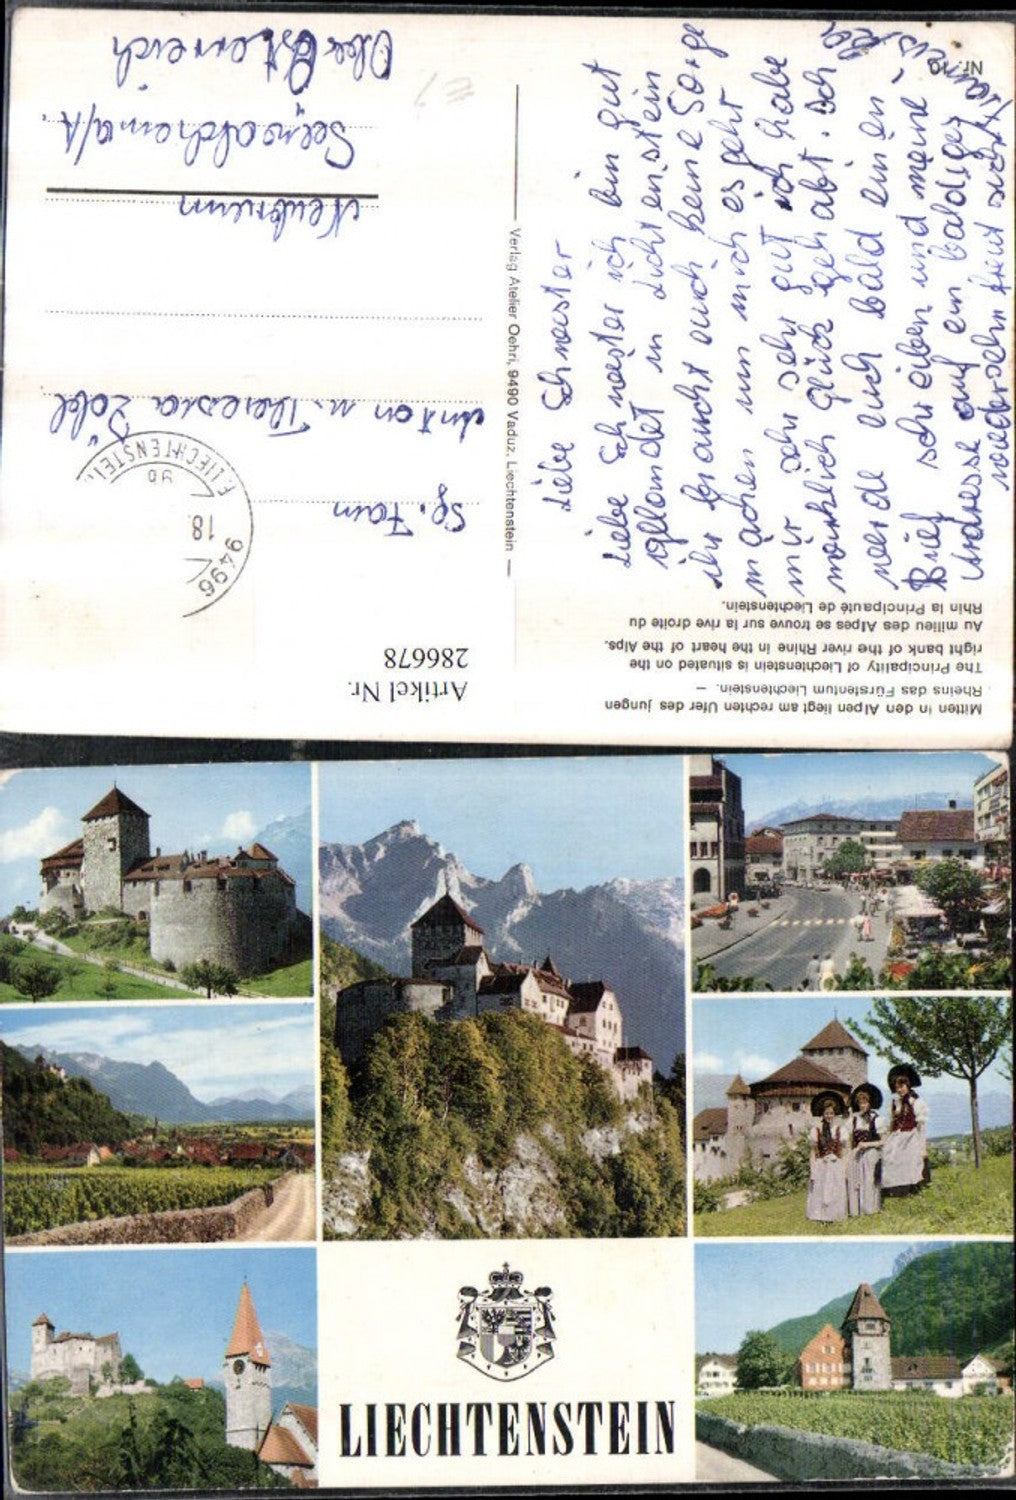 Mitten in den Alpen liegt am rechten Ufer des jungen
Rheins das Fürstentum Liechtenstein. –
The Principality of Liechtenstein is situated on the
right bank of the river Rhine in the heart of the Alps.
Au milieu des Alpes se trouve sur la rive droite du
Rhin la Principauté de Liechtenstein.
Liebe Schwester
Liebe Schwester ich bin gut
gelandet in Lichtenstein
ihr braucht euch keine Sorge
machen um mich es geht
mir sehr gut ich habe
wirklich Glück gehabt. Ich
werde euch bald ein en
Brief schreiben und meine
Adresse auf ein baldiges
wiedersehn freut sich
Nr. 10
Verlag Atelier Oehri, 9490 Vaduz, Liechtenstein
Artikel Nr.
286678
9496
18.
F. LIECHTENSTEIN
Fam
Anton u. Theresia
Ober Österreich
LIECHTENSTEIN